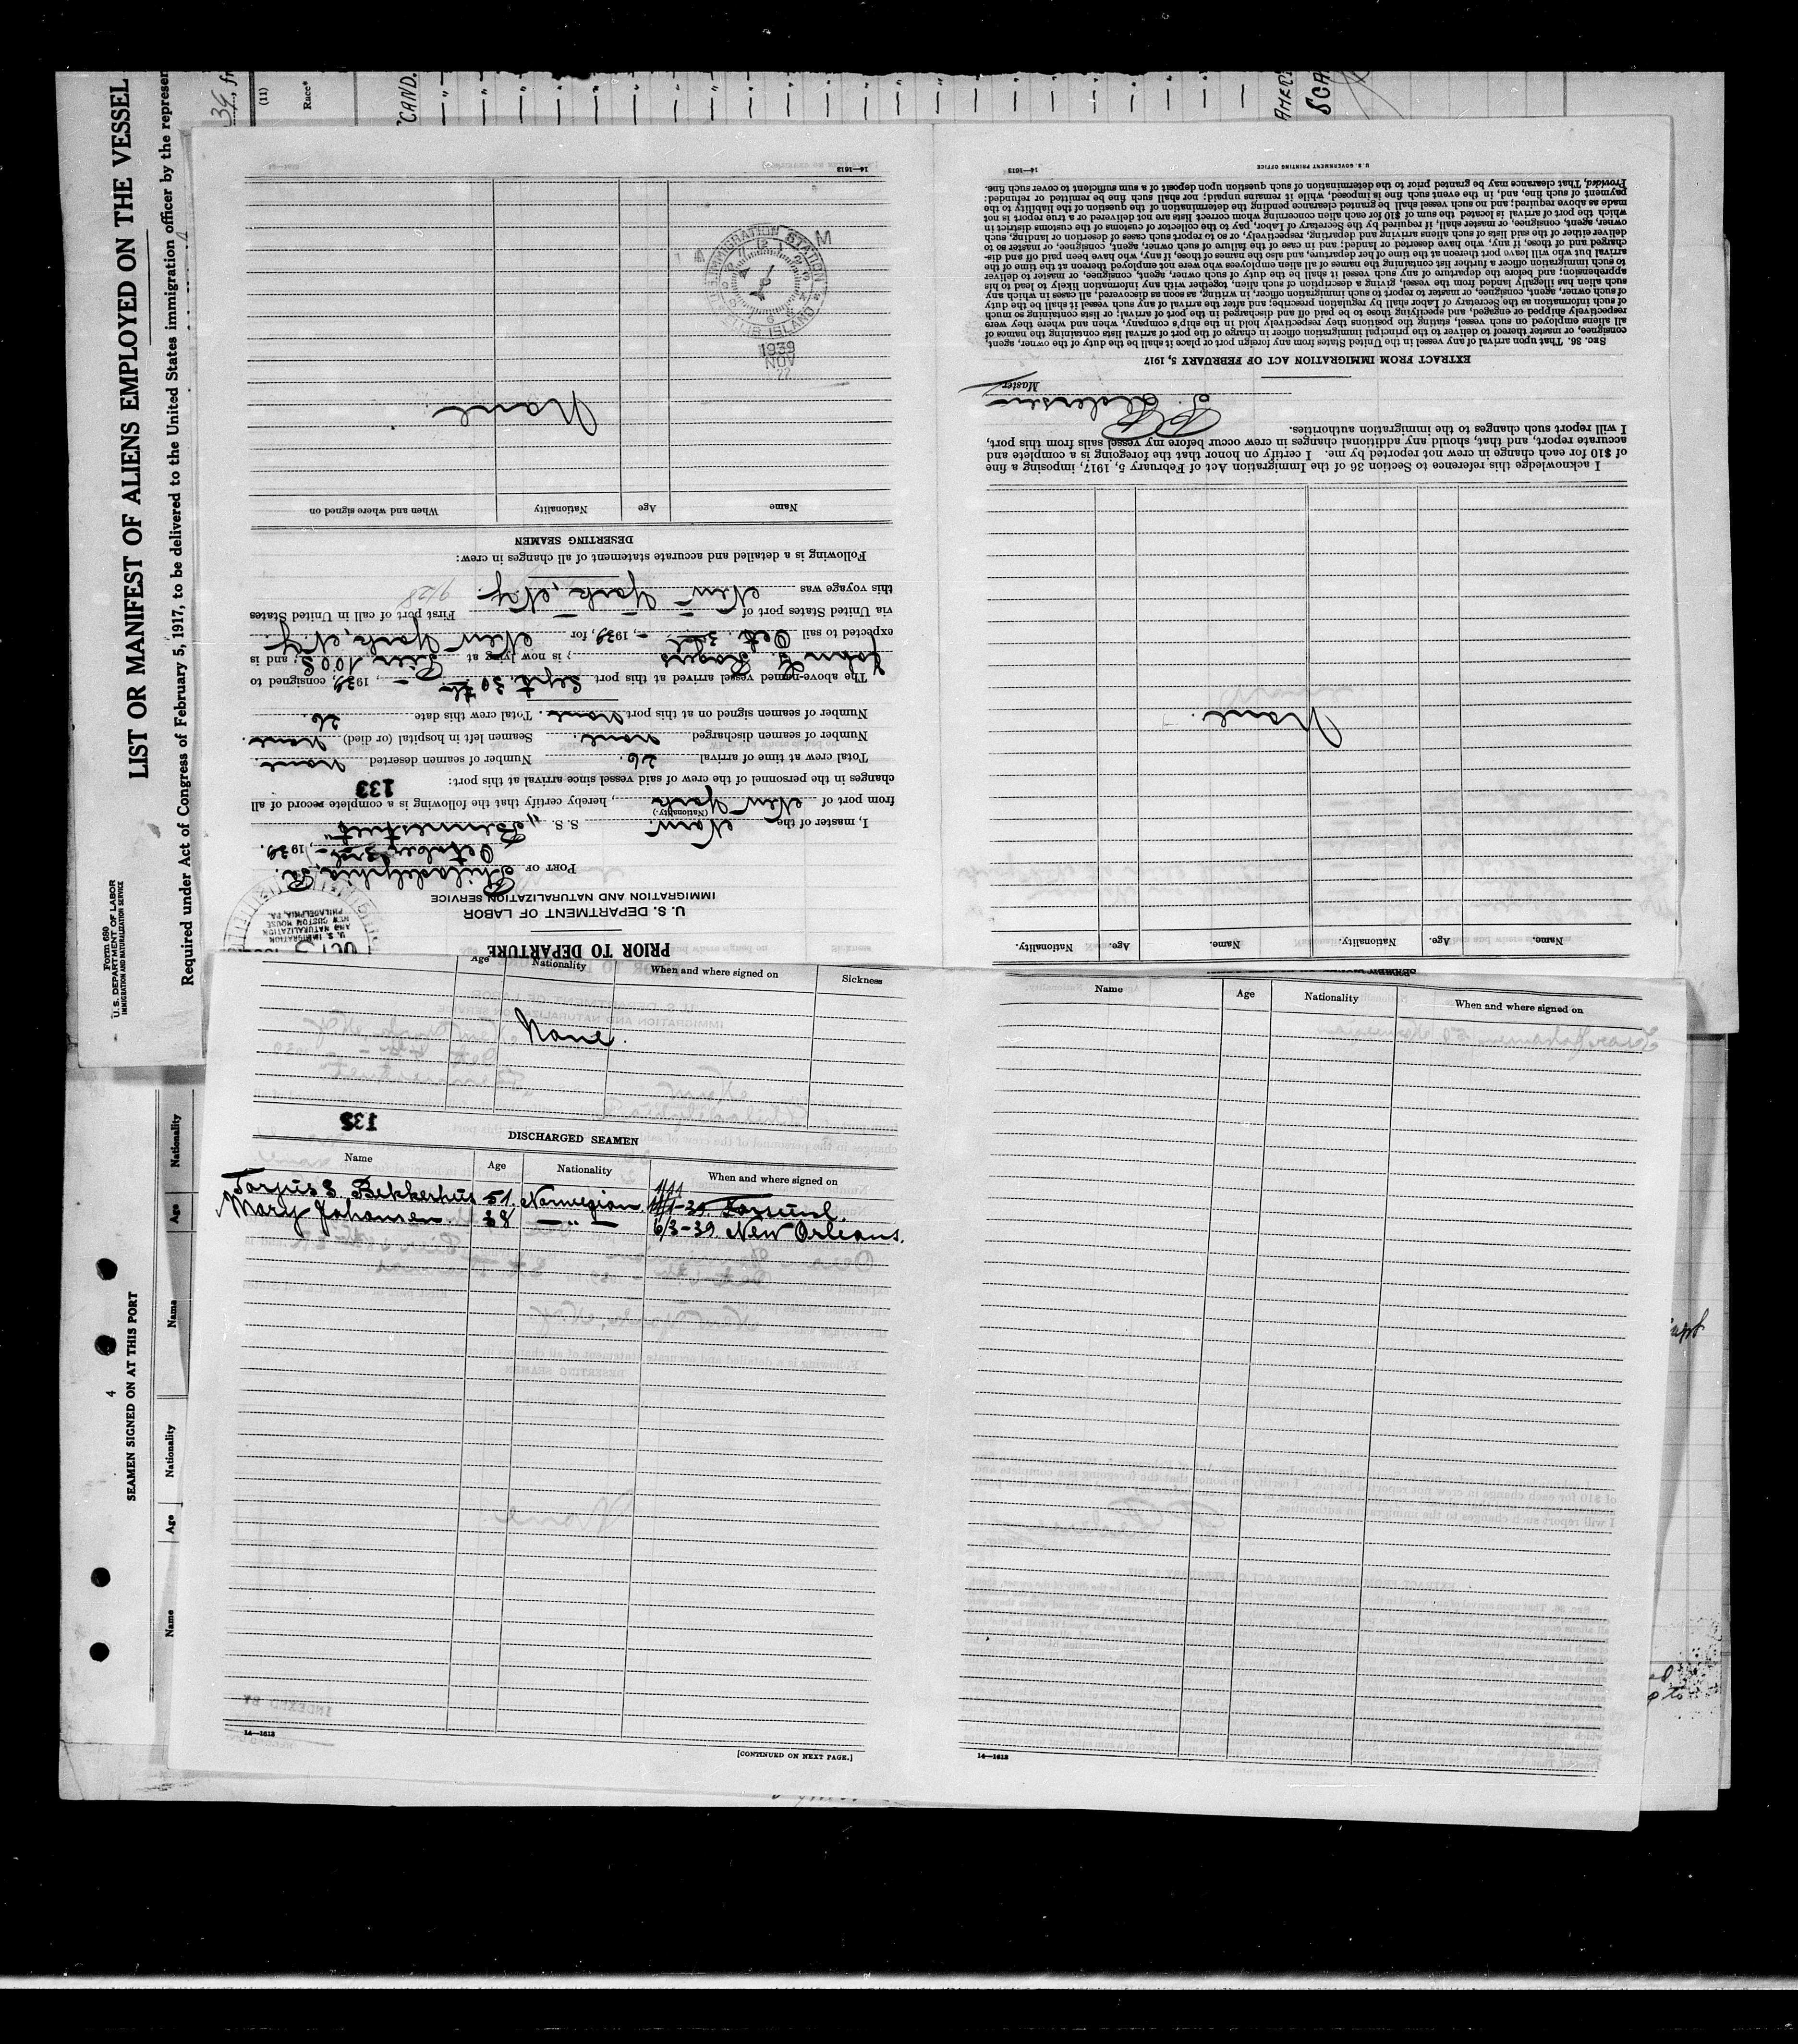 LIST OR MANIFEST OF ALIENS EMPLOYED ON THE VESSEL
Required under Act of Congress of February 5, 1917, to be delivered to the United States immigration officer by the represen
Form 680
U. S. DEPARTMENT OF LABOR
IMMIGRATION AND NATURALIZATION SERVICE
(11)
Race*
PRIOR TO DEPARTURE
U. S. DEPARTMENT OF LABOR
IMMIGRATION AND NATURALIZATION SERVICE
U. S. IMMIGRATION
AND NATURALIZATION
NEW CUSTOM HOUSE
PHILADELPHIA, PA.
PORT OF Philadelphia, Pa.
October 3rd, 1939.
I, master of the Norw S. S.
(Nationality.)
from port of New York, hereby certify that the following is a complete record of all
changes in the personnel of the crew of said vessel since arrival at this port:
133
Total crew at time of arrival 26. Number of seamen deserted None
Number of seamen discharged None. Seamen left in hospital (or died) None.
Number of seamen signed on at this port None. Total crew this date 26.
The above-named vessel arrived at this port Sept. 30th, 1939, consigned to
John G. Rogers; is now lying at Pier 100 S; and is
expected to sail Oct. 3rd, 1939, for New York, N.Y.
via United States port of First port of call in United States
this voyage was New York, N.Y. 9/28
Following is a detailed and accurate statement of all changes in crew:
DESERTING SEAMEN
Name Age Nationality When and where signed on
None
22
NOV
1939
IMMIGRATION STATION
ISLAND
14—1613
Name. Age. Nationality. Name. Age. Nationality.
None.
I acknowledge this reference to Section 36 of the Immigration Act of February 5, 1917, imposing a fine
of $10 for each change in crew not reported by me. I certify on honor that the foregoing is a complete and
accurate report, and that, should any additional changes in crew occur before my vessel sails from this port,
I will report such changes to the immigration authorities.
Master.
EXTRACT FROM IMMIGRATION ACT OF FEBRUARY 5, 1917
SEC. 36. That upon arrival of any vessel in the United States from any foreign port or place it shall be the duty of the owner, agent,
consignee, or master thereof to deliver to the principal immigration officer in charge of the port of arrival lists containing the names of
all aliens employed on such vessel, stating the positions they respectively hold in the ship's company, when and where they were
respectively shipped or engaged, and specifying those to be paid off and discharged in the port of arrival; or lists containing so much
of such information as the Secretary of Labor shall by regulation prescribe; and after the arrival of any such vessel it shall be the duty
of such owner, agent, consignee, or master to report to such immigration officer, in writing, as soon as discovered, all cases in which any
such alien has illegally landed from the vessel, giving a description of such alien, together with any information likely to lead to his
apprehension; and before the departure of any such vessel it shall be the duty of such owner, agent, consignee, or master to deliver
to such immigration officer a further list containing the names of all alien employees who were not employed thereon at the time of the
arrival but who will leave port thereon at the time of her departure, and also the names of those, if any, who have been paid off and dis-
charged and of those, if any, who have deserted or landed; and in case of the failure of such owner, agent, consignee, or master so to
deliver either of the said lists of such aliens arriving and departing, respectively, or so to report such cases of desertion or landing, such
owner, agent, consignee, or master shall, if required by the Secretary of Labor, pay to the collector of customs of the customs district in
which the port of arrival is located the sum of $10 for each alien concerning whom correct lists are not delivered or a true report is not
made as above required; and no such vessel shall be granted clearance pending the determination of the question of the liability to the
payment of such fine, and, in the event such fine is imposed, while it remains unpaid; nor shall such fine be remitted or refunded:
Provided, That clearance may be granted prior to the determination of such question upon deposit of a sum sufficient to cover such fine.
U. S. GOVERNMENT PRINTING OFFICE
14—1613
Age Nationality When and where signed on Sickness
None.
133
DISCHARGED SEAMEN
Name Age Nationality When and where signed on
Torjus S. Bekkerhus 51. Norwegian
Mary Johansen. 38 — " — 6/3-39. New Orleans.
14—1613
[CONTINUED ON NEXT PAGE.]
Name Age Nationality When and where signed on
14—1613
4
SEAMEN SIGNED ON AT THIS PORT
Name Age Nationality Name Age Nationality